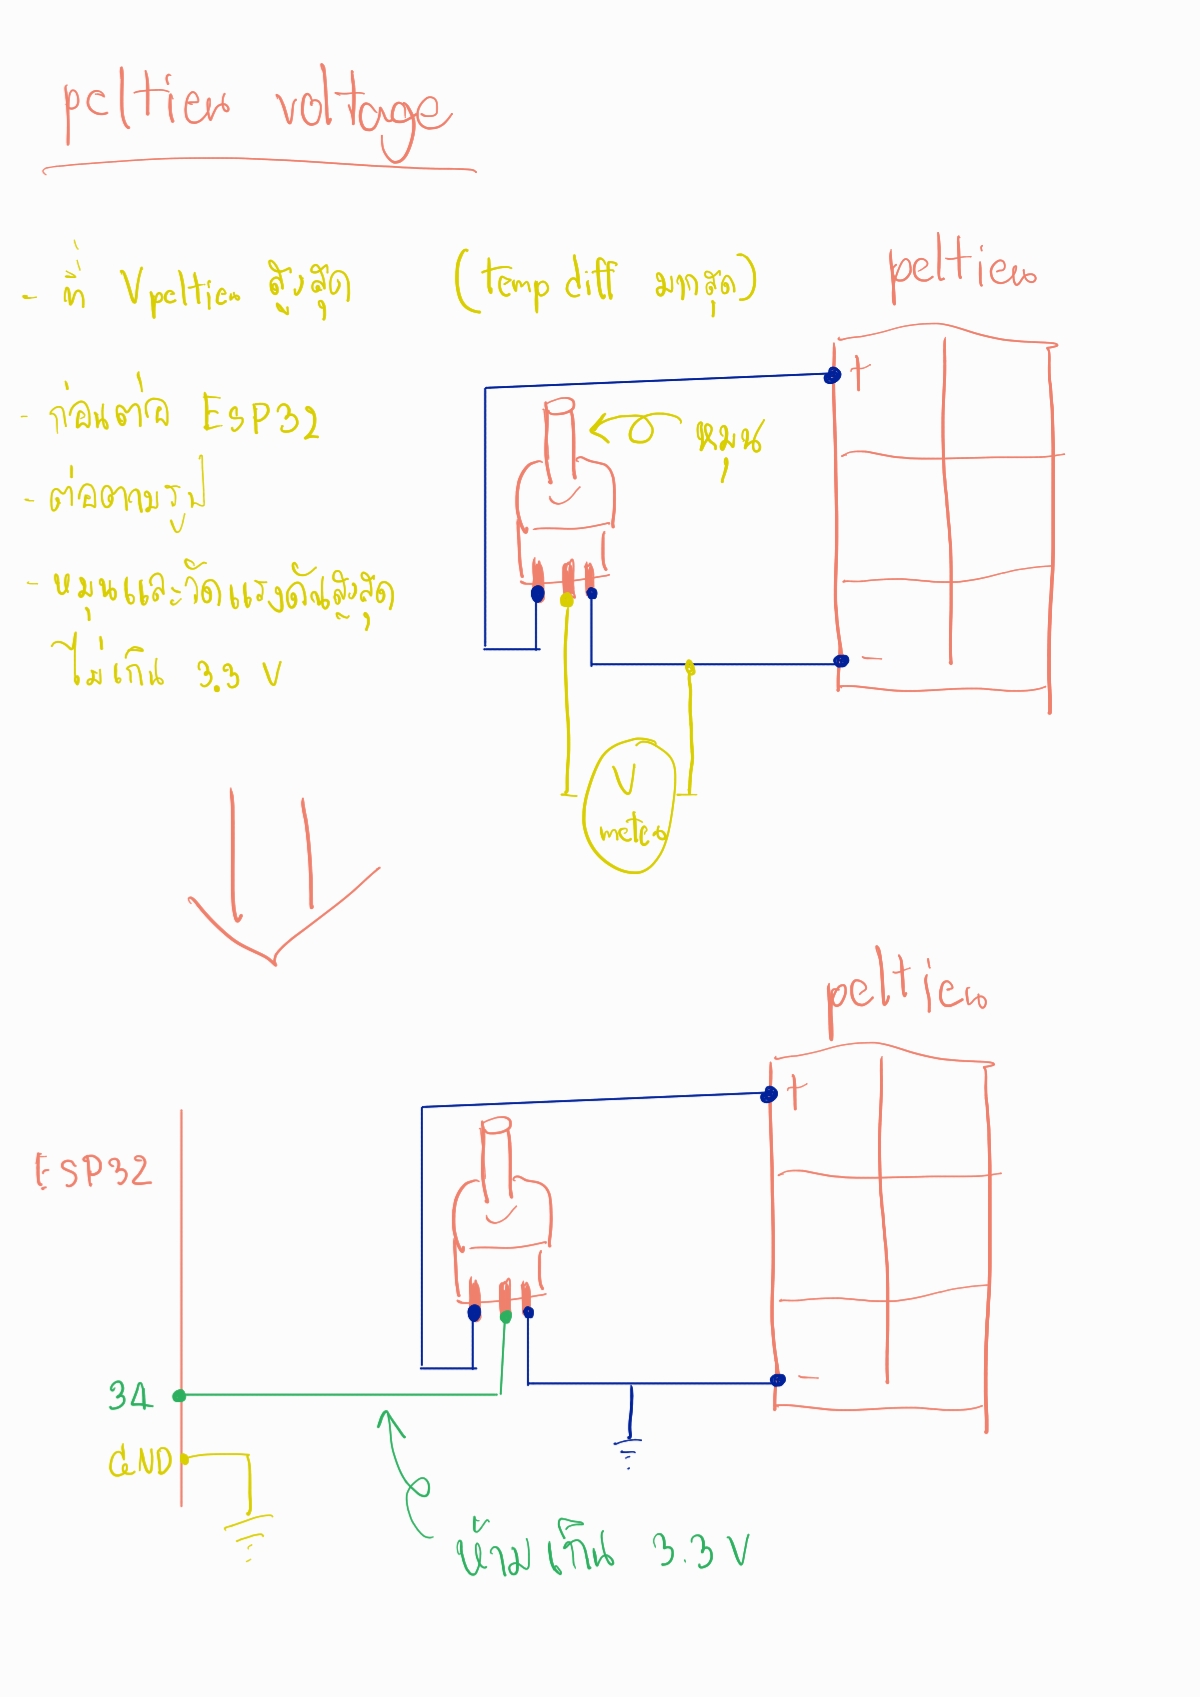 peltier voltage
- ที่ Vpeltier สูงสุด (temp diff มากสุด)
peltier
+
- ก่อนต่อ ESP32
หมุน
- ต่อตามรูป
- หมุนและวัดแรงดันสูงสุด
ไม่เกิน 3.3 V
-
V
meter
peltier
+
ESP32
-
34
GND
ห้ามเกิน 3.3 V